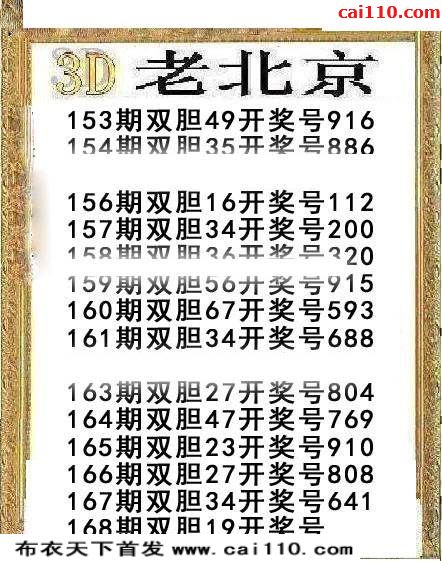 cai110.com
3D 老北京
153期双胆49开奖号916
154期双胆35开奖号886
156期双胆16开奖号112
157期双胆34开奖号200
158期双胆36开奖号320
159期双胆56开奖号915
160期双胆67开奖号593
161期双胆34开奖号688
163期双胆27开奖号804
164期双胆47开奖号769
165期双胆23开奖号910
166期双胆27开奖号808
167期双胆34开奖号641
168期双胆19开奖号
布衣天下首发 www.cai110.com